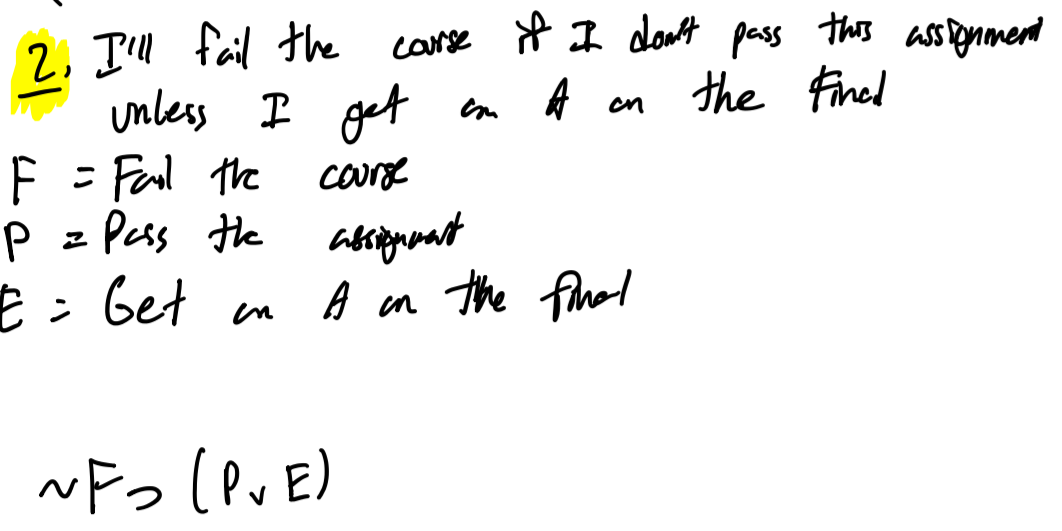 2. I'll fail the course if I don't pass this assignment
unless I get an A on the final
F = Fail the course
P = Pass the assignment
E = Get an A on the final
~F ⊃ (P ∨ E)